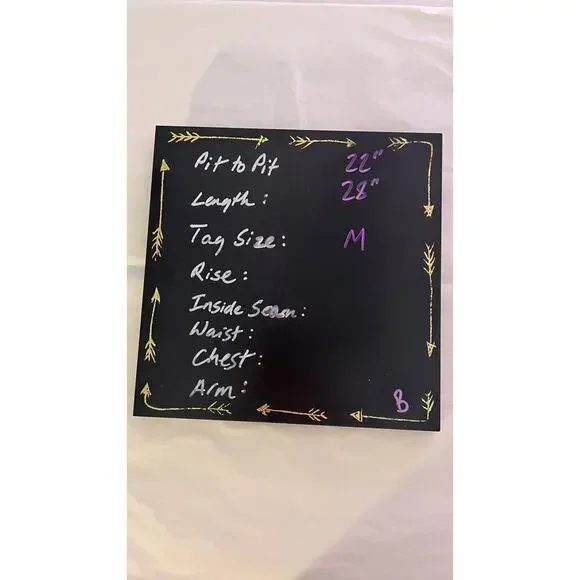 Pit to Pit 22"
Length: 28"
Tag Size: M
Rise:
Inside Seam:
Waist:
Chest:
Arm:
B